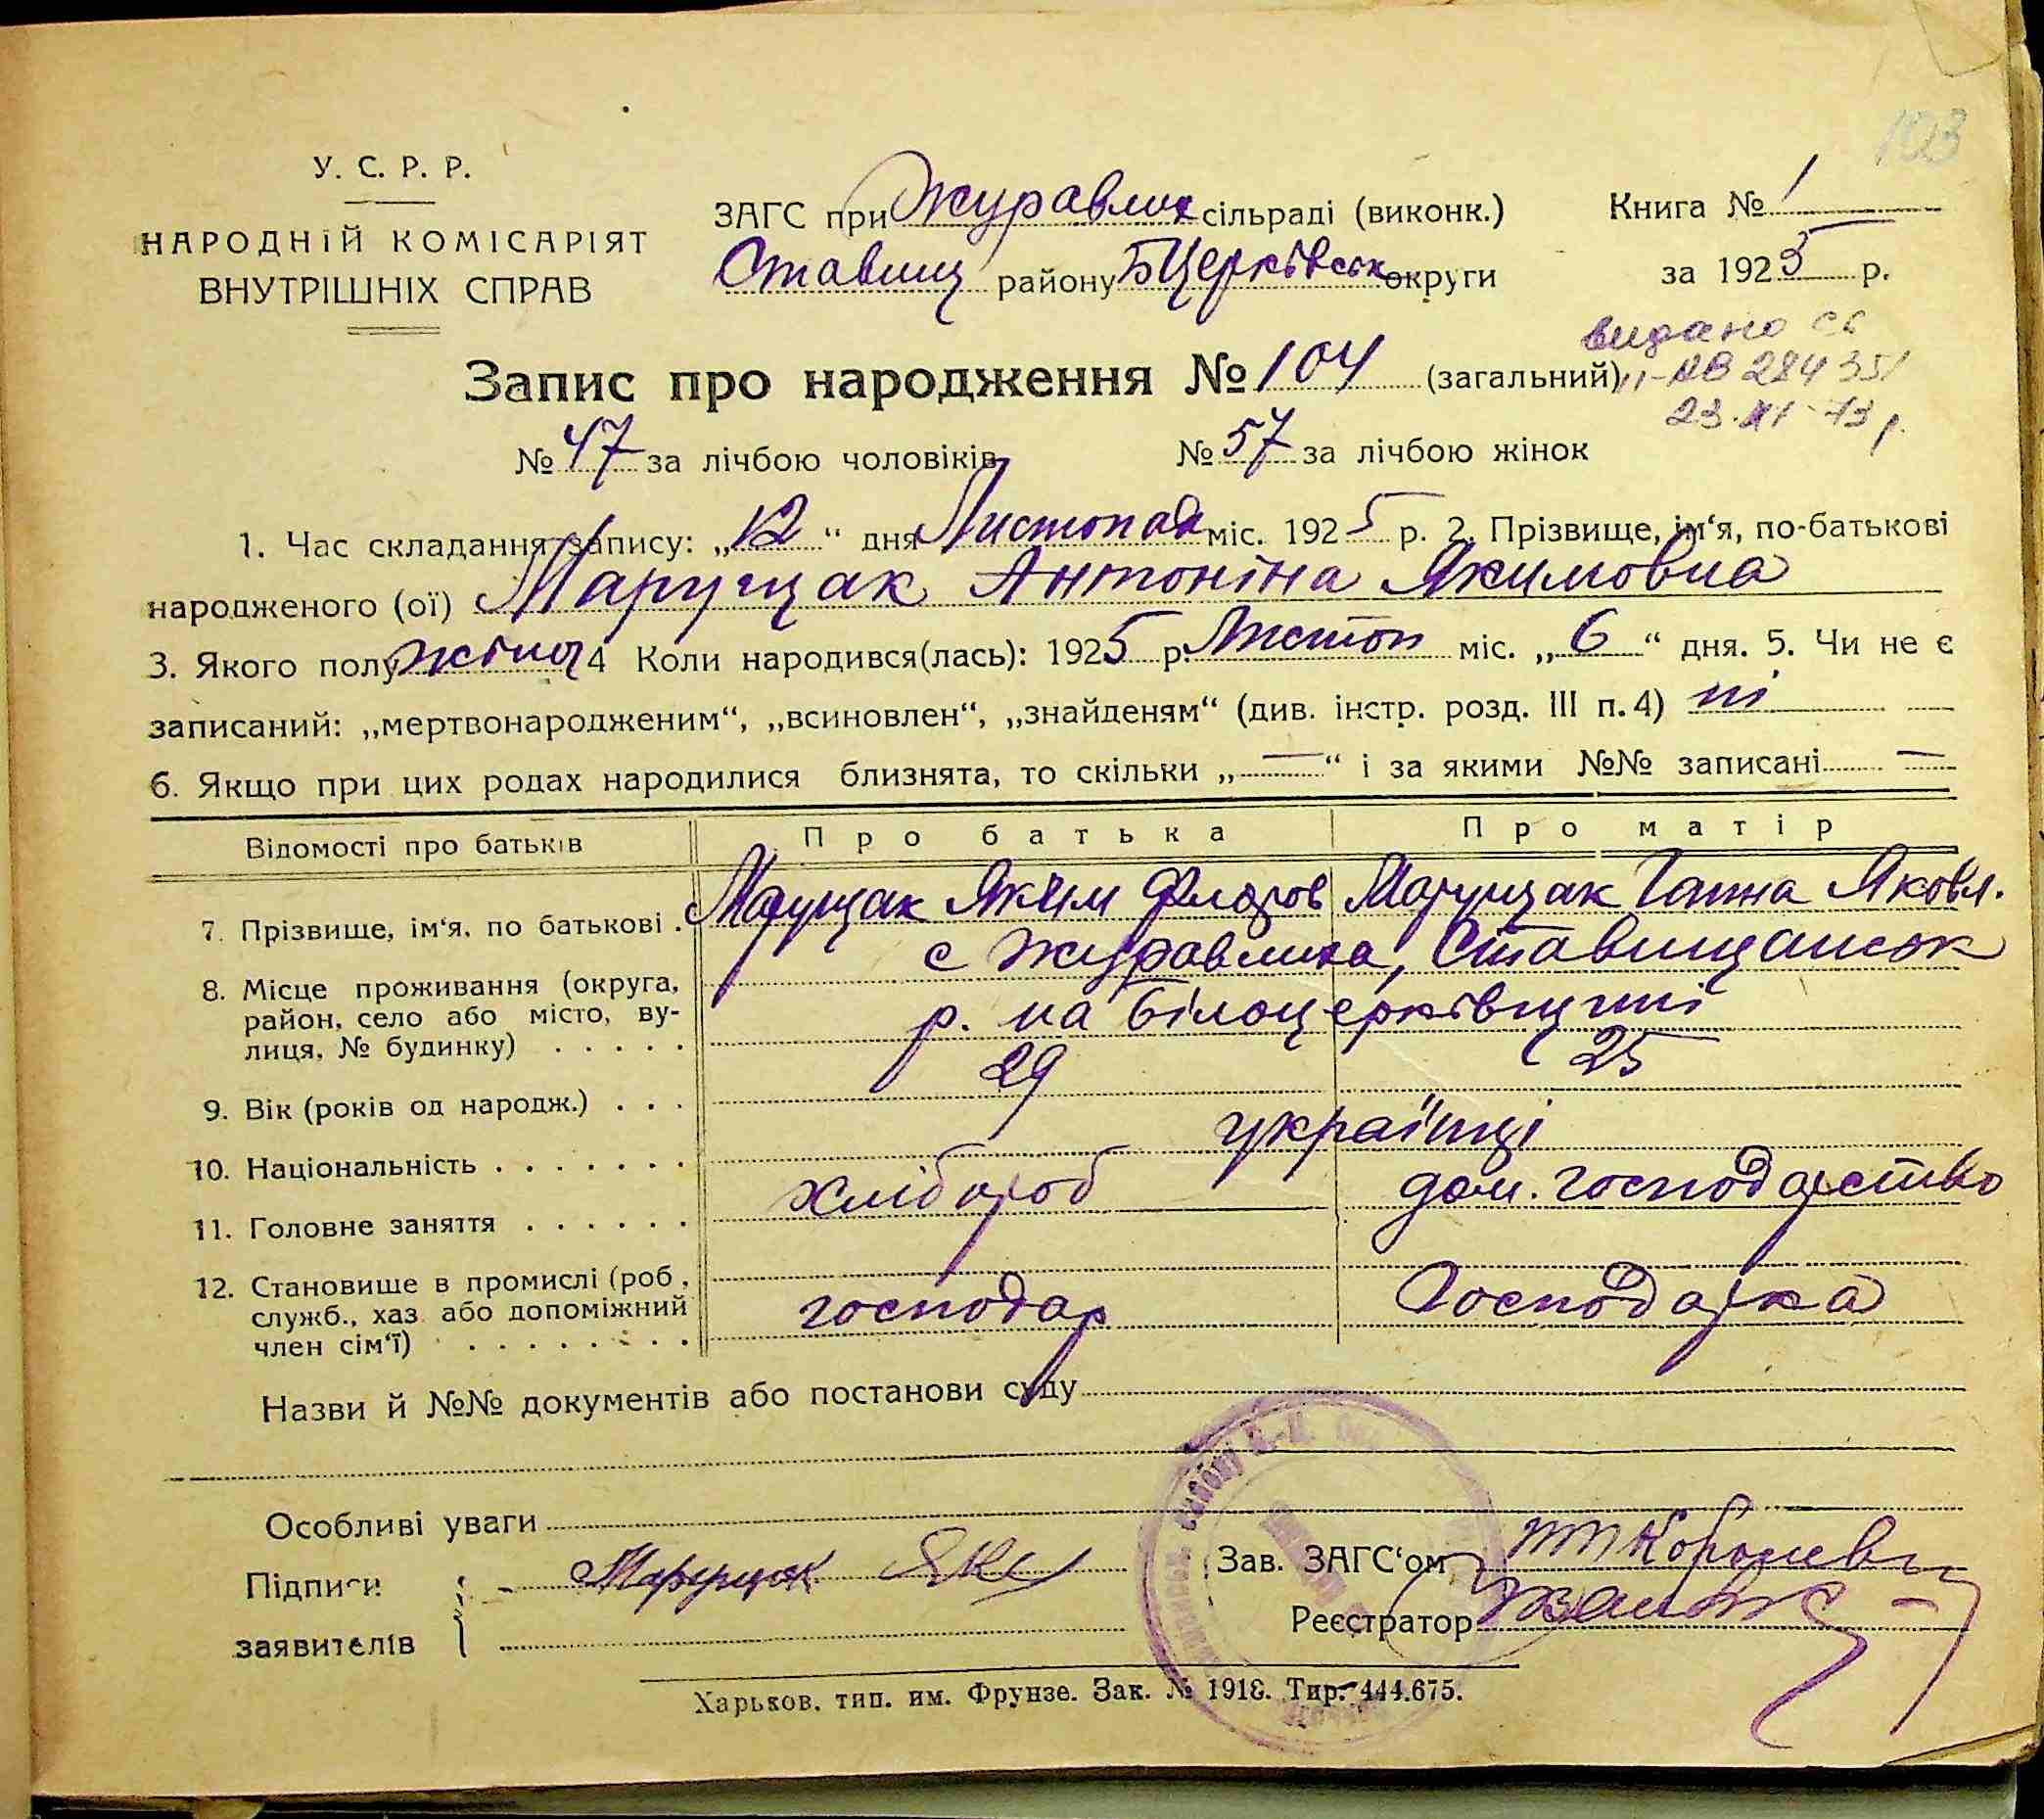 103
У. С. Р. Р.
НАРОДНІЙ КОМІСАРІЯТ
ВНУТРІШНІХ СПРАВ
ЗАГС при Журавлих сільраді (виконк.)
Ставищ району БЦерківськ округи
Книга № 1
за 1925 р.
видано св
II-АВ 284351
23.XI-73 р.
Запис про народження № 104 (загальний)
№ 47 за лічбою чоловіків № 57 за лічбою жінок
1. Час складання запису: „12“ дня Листопад міс. 1925 р. 2. Прізвище, ім‘я, по-батькові
народженого (ої) Марущак Антоніна Якимовна
3. Якого полу жіноч 4 Коли народився(лась): 1925 р. Листоп міс. „6“ дня. 5. Чи не є
записаний: „мертвонародженим“, „всиновлен“, „знайденям“ (див. інстр. розд. III п. 4) ні
6. Якщо при цих родах народилися близнята, то скільки „—“ і за якими №№ записані —
Відомості про батьків Про батька Про матір
7. Прізвище, ім‘я, по батькові . Марущак Яким Флоров Марущак Ганна Яковл.
8. Місце проживання (округа, с Журавлиха, Ставищанськ
район, село або місто, ву-
лиця, № будинку) . . . . . р. на Білоцерківщині
9. Вік (років од народж.) . . . 29 25
10. Національність . . . . . . . українці
11. Головне заняття . . . . . . хлібороб дом. господарство
12. Становище в промислі (роб.,
служб., хаз. або допоміжний господар Господарка
член сім‘ї) . . . . . . . .
Назви й №№ документів або постанови суду
Особливі уваги
Підписи Марущак Яким
заявителів
Зав. ЗАГС‘ом
Реєстратор
Харьков, тип. им. Фрунзе. Зак. № 1918. Тир. 444.675.